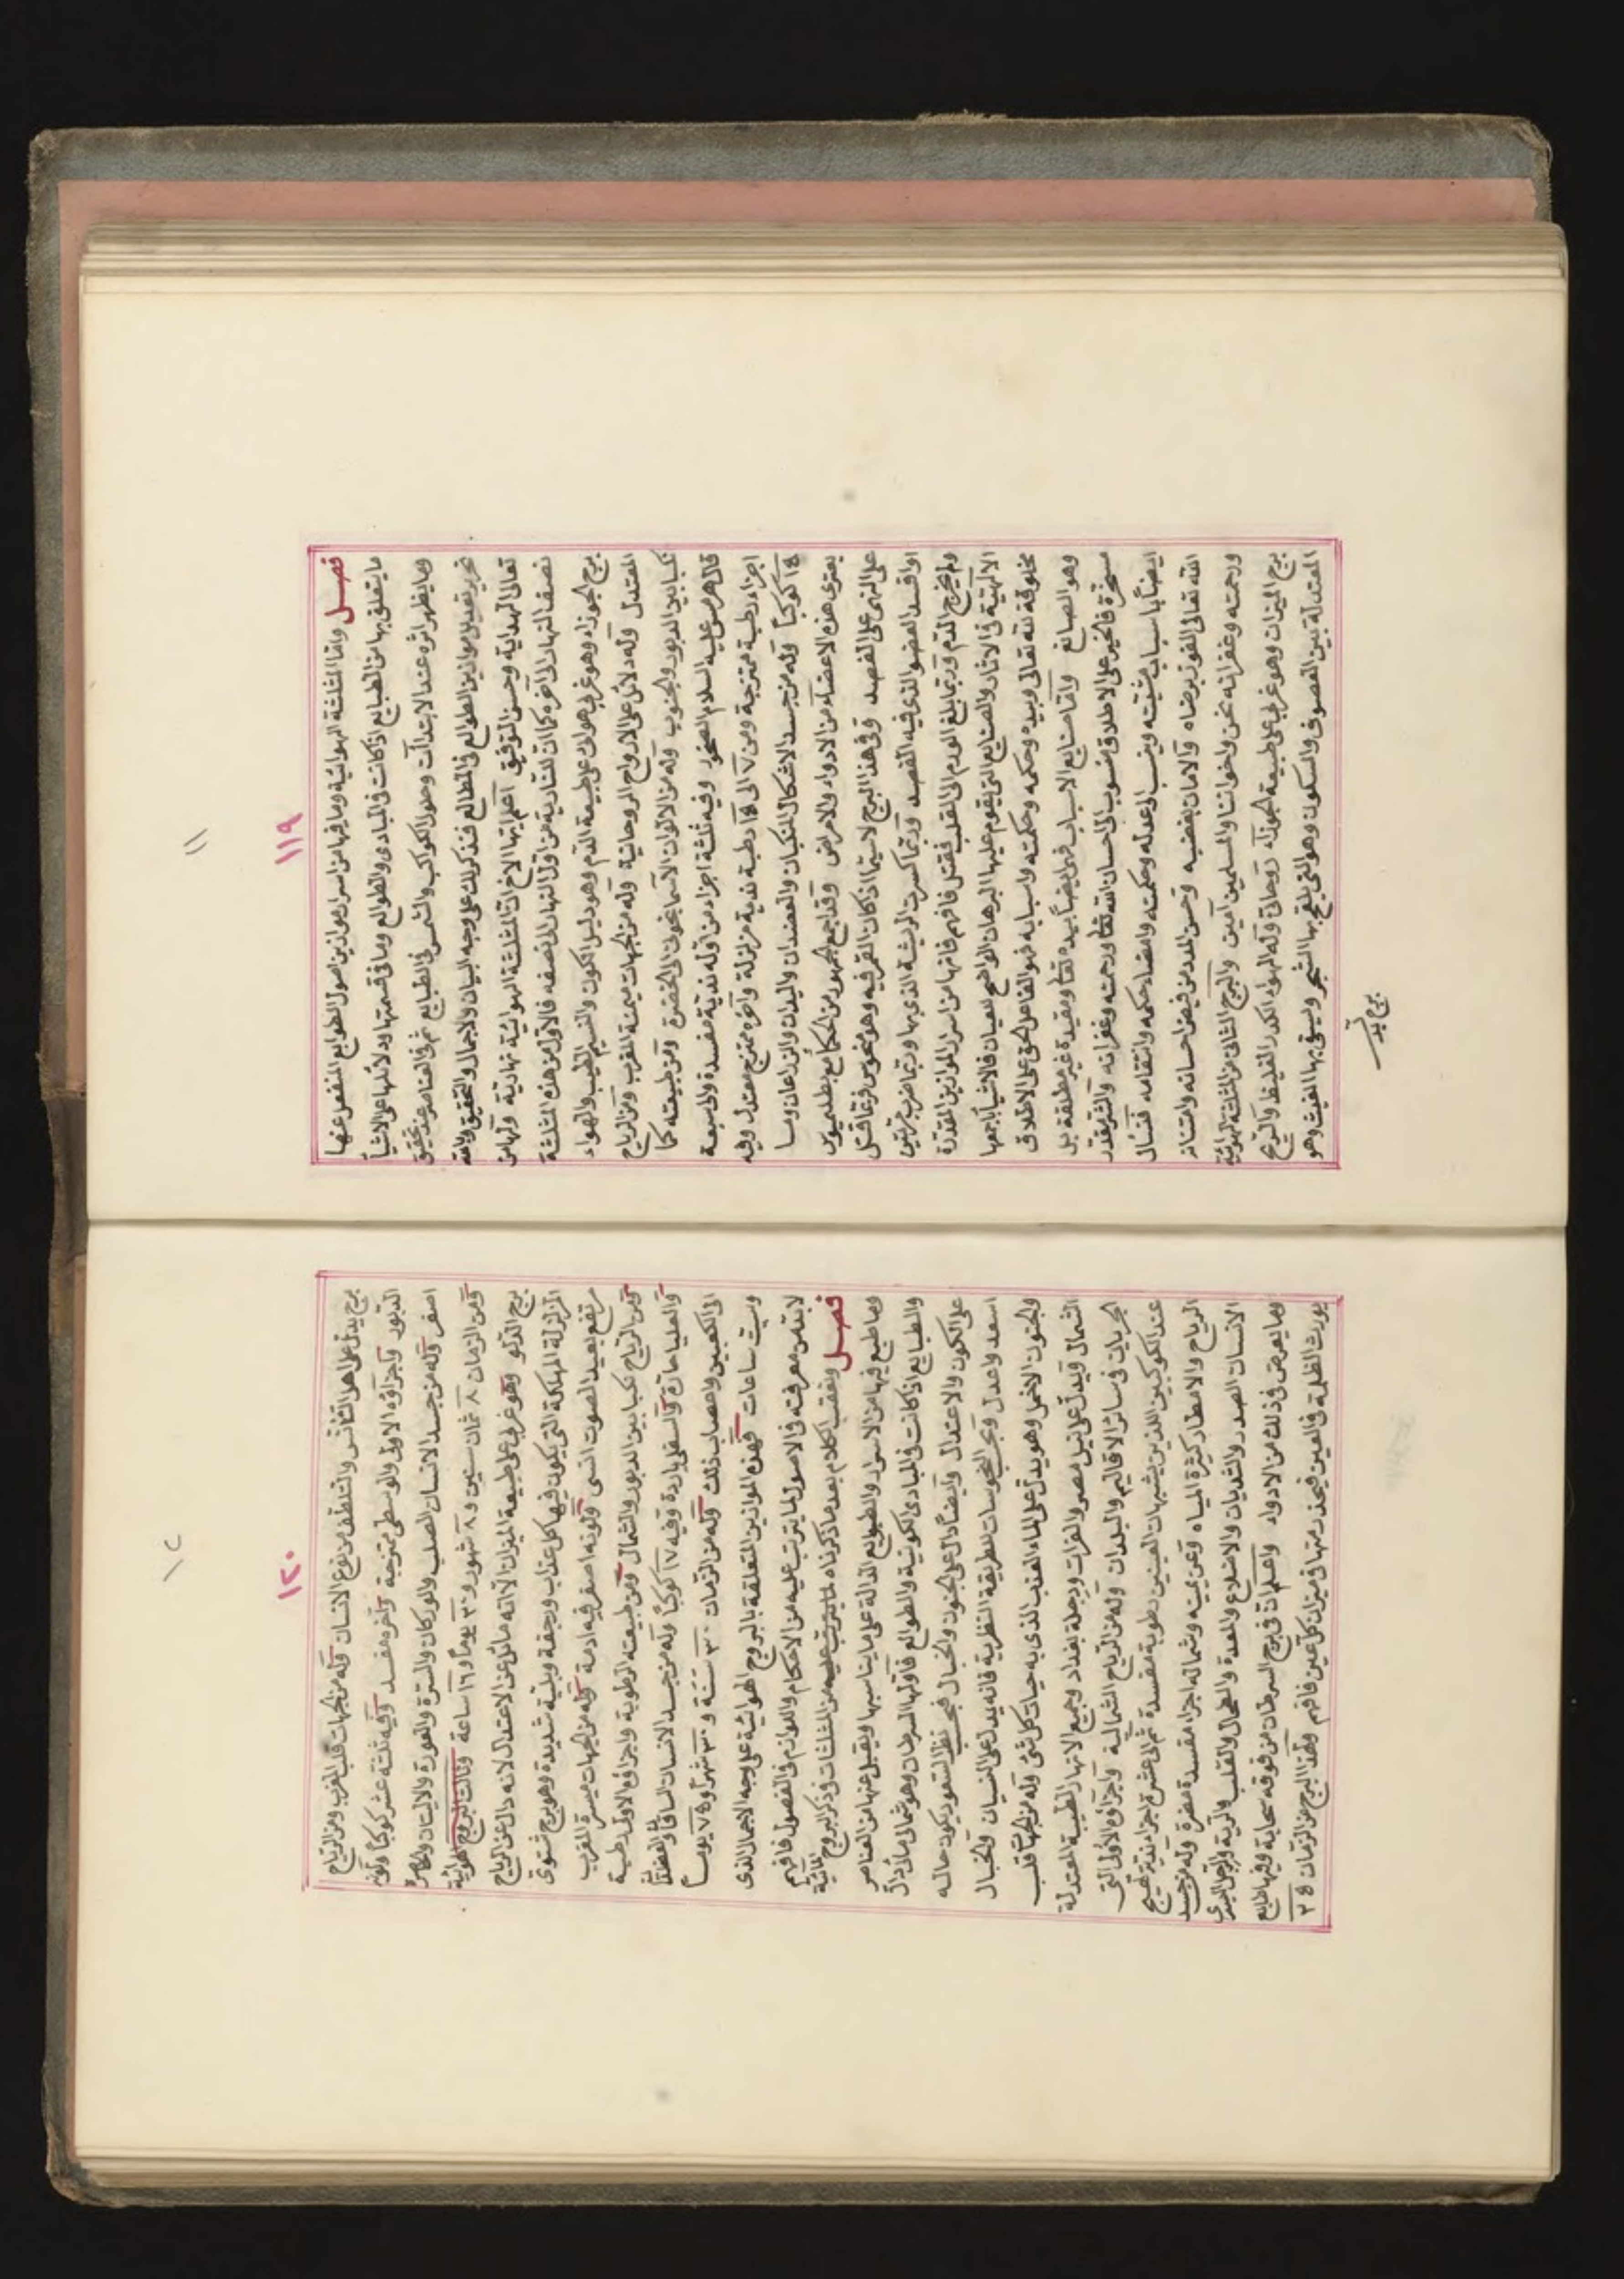 ١١
١١٩
فصل واما المثلثة الهوائية وما فيها من اسرار موازين اصول الطوابع المنفعل عنها
ما يتعلق بها من الطبايع اذا كانت فى المبادى والطوالع وما فى قسمتها ودلائلها على الاشياء
وما يظهر اثره عند الابتدآت وحلول الكواكب والشمس فى الطبايع ثم فى العناصر عند تحقيق
تحرير تعديل موازين الطوالع فى المطالع فنذكر لك على وجه البيان والاجمال والتحقيق والله
تعالى الهداية وحسن التوفيق اعلم ايها الاخ ان المثلثة الهوائية نهارية ولها من
نصف النهار الى آخره كما ان للنارية من اول النهار الى نصفه فالاول من هذه المثلثة
برج الجوزاء وهو غربى هوائى على طبيعة الدم وهو دليل الكون والنسيم الطيب والهواء
المعتدل وله دلائل على الارواح الروحانية وله من الجهات ميمنة المغرب ومن الرياح
نكبا بين الدبور والجنوب وله من الالوان الاسمانجونى الى الخضرة ومن طبيعته كما
قال هرمس عليه السلام الصخور وفيه ثلثة اجزاء من اوله ندية مفسدة والى سبعة
اجزاء رطبة ممتزجة ومن ٧ الى ١٥ رطبة ندية مزلزلة وآخره ممتزج معتدل وفيه
١٥ كوكباً وله من جسد الاشكال المنكبان والعضدان واليدان والذراعان وما
يعترى هذه الاعضاء من الادواء والامراض وقد اجمع الجمهور من الحكماء مع بطلميوس
على النهى على الفصد وفى هذا البرج لا سيما اذا كان القمر فيه وهو منحوس فربما قتل
او افسد العضو الذى فيه الفصد وربما كسرت الريشة الذى بها وربما ضرب مرتين
ولم يخرج الدم وربما بلغ الورم الى القلب فقتل فافهم فانها من اسرار الموازين المقدرة
الالهية فى الآثار والصنايع التى يقوم عليها البرهان الواضح للعيان فالاشياء باجمعها
مخلوقة لله تعالى وبيده وحكمه وحكمته واسبابه فهو الفاعل الحق على الاطلاق
وهو الصانع واما صنايع الاسباب فهى ايضاً بيده تعالى ومقيدة غير مطلقة بل
مسخرة فالخير على الاطلاق منسوب الى احسان الله تعالى ورحمته وغفرانه والشر مقدر
ايضاً باسباب مشيته وينسب الى عدله وحكمته وامضاء حكمه وانتقامه فنسال
الله تعالى الفوز برضاه والامان بغضبه وحسن المدد من فيض احسانه وامتنانه
ورحمته وغفرانه نحن واخواننا والمسلمين آمين والبرج الثانى من المثلثة الهوائية
برج الميزان وهو غربى على طبيعة الجوزاء روحانى وله الهواء الكدر الغليظ والريح
المعتدلة بين العصوف والسكون وهو التى يلقح بها الشجر ويسقى بها الغيث وهو
برج يدل
١٢
١٢٠
برج يدل على اهل التأنس والتلطف من نوع الانسان وله من الجهات قلب المغرب ومن الرياح
الدبور واجزاؤه الاولى والوسطى ممتزجة وآخره مفسد وفيه ثلثة عشر كوكباً ولونه
اصفر وله من جسد الانسان الصلب والوركان والسرة والعورة والاليتان والخاصرة
ومن الزمان ٨ ثمان سنين و٨ شهور و٣٠ يوماً و١٦ ساعة وثالث البروج الهوائية
برج الدلو وهو غربى على طبيعة الميزان الا انه مائل عن الاعتدال لانه دال عن الرياح
المزلزلة المهلكة التى يكون فيها كل عذاب ورجفة وبلية شديدة وهو برج شتوى
مرتفع بعيد الصوت انسى ولونه اصفر فيه ادمة وله من الجهات ميسرة المغرب
ومن الرياح نكبا بين الدبور والشمال ومن طبيعته الرطوبة واجزاؤه الاولى رطبة
والعليا حارة والسفلى باردة وفيه ١٧ كوكباً وله من جسد الانسان الساقا والعضلتا
الى الكعبين واعصاب ذلك وله من الزمان ٣٠ سنة و٣٠ شهراً و٧٥ يوماً
وست ساعات فهذه الموازين المتعلقة بالبروج الهوائية على وجه الاجمال الذى
لا بد من معرفته فى الاصول لما يترتب عليه من الاحكام واللوازم فى الفصول فافهم
فصل ونعقب الكلام بعد ما ذكرناه لما يترتب عليه من المثلثات فى ذكر البروج المائية
وما طبع فيها من الاسرار والطبوايع الدالة على ما يناسبها ويقبل عنها من العناصر
والطبايع اذا كانت فى المبادى الكونية والطوالع فاولها السرطان وهو شمالى مائى دال
على الكون والاعتدال وايضاً دال على الجنون والخبال فبحسب نظر السعود يكون حاله
اسعد واعدل وبحسب النحوسات للطريقة النظرية فانه يدل على النسيان والخبال
والجنون الاخص وهو يدل على الماء العذب الذى به حيات كل شئ وله من الجهات قلب
الشمال ويدل على نيل مصر والفرات ودجلة بغداد وجميع الانهار الطيبة المعتدلة
الجريان فى سائر الاقاليم والبلدان وله من الرياح الشمالية واجزاؤه الاولى التى
عند الكوكبين الذين يشبهان العينين رطوبة مفسدة ثم الى عشرة اجزاء ندية تهيج
الرياح والامطار كثيرة المياه وعن يمينه وشماله اجزا مفسدة مضرة وله من جسد
الانسان الصدر والثديان والاضلاع والمعدة والطحال والقلب والرية والوحى السرى
وما يعرض فى ذلك من الادواء واعلم ان فى برج السرطان من فوقه سحابة وفيها طابع
يورث الظلمة فى العين فيحذر منها فى ميزان كل عين فافهم ولهذا البرج من الزمان ٢٥